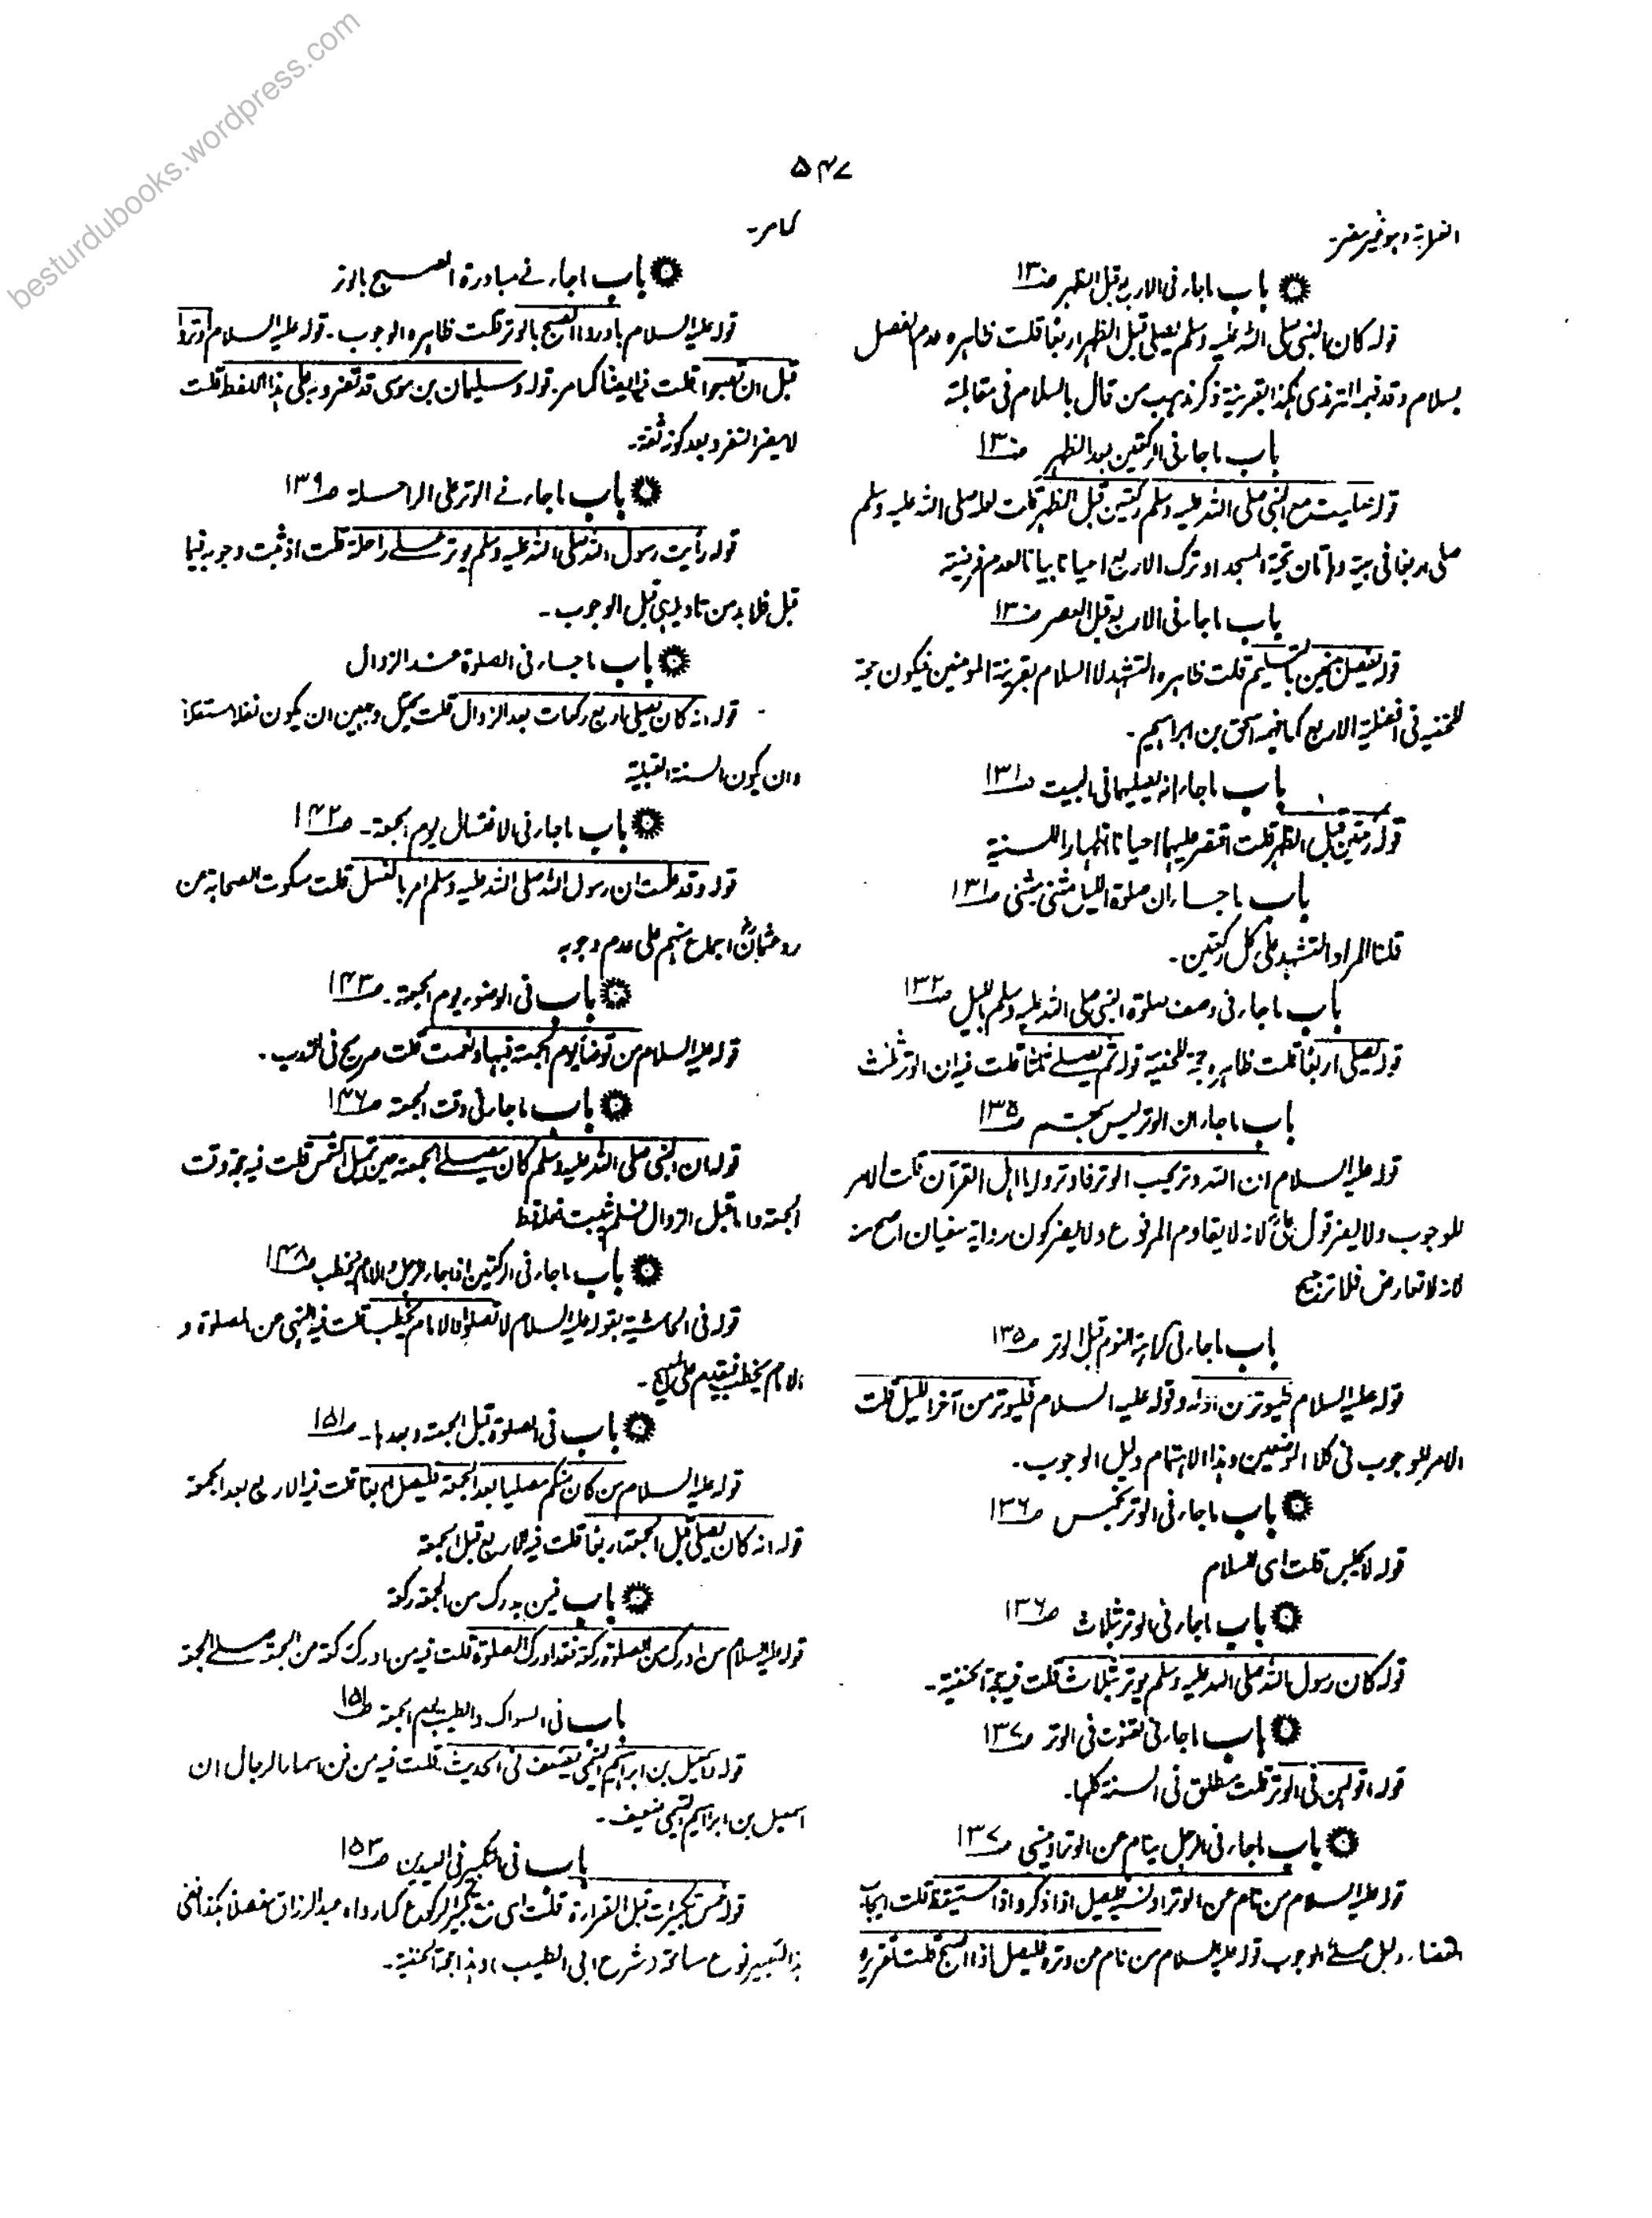 besturdubooks.wordpress.com
۵۴۷
باب ماجاء فی الاربع قبل الظهر ص۱۳۰
قوله کان النبی صلی الله علیه وسلم یصلی قبل الظهر اربعا قلت ظاهره عدم الفصل
بسلام وقد فهمه الترمذی هکذا بقرینة ذکر مذهب من قال بالسلام فی مقابلته
باب ماجاء فی الرکعتین بعد الظهر ص۱۳۰
قوله صلیت مع النبی صلی الله علیه وسلم رکعتین قبل الظهر قلت لعله صلی الله علیه وسلم
صلی اربعا فی بیته وهاتان تحیة المسجد او ترک الاربع احیانا بیانا لعدم فرضیته
باب ماجاء فی الاربع قبل العصر ص۱۳۰
قوله یفصل بینهن بالتسلیم قلت ظاهره التشهد لا السلام بقرینة المومنین فیکون حجة
للحنفیه فی افضلیة الاربع کما فهمه اسحق بن ابراهیم۔
باب ماجاء انه یصلیهما فی البیت ص۱۳۱
قوله رکعتین قبل الظهر قلت اقتصر علیهما احیانا اظهارا للسنیة
باب ماجاء ان صلوة اللیل مثنی مثنی ص۱۳۱
قلنا المراد التشهد علی کل رکعتین۔
باب ماجاء فی وصف صلوة النبی صلی الله علیه وسلم باللیل ص۱۳۲
قوله یصلی اربعا قلت ظاهره حجة للحنفیة قوله ثم یصلے ثلثا قلت فیه ان الوتر ثلث
باب ماجاء ان الوتر لیس بحتم ص۱۳۵
قوله علیه السلام ان الله وتر یحب الوتر فاوتروا یا اهل القرآن قلت الامر
للوجوب ولا یضر قول علی لانه لا یقاوم المرفوع ولا یضر کون روایة سفیان اصح منه
لانه لا تعارض فلا ترجیح
باب ماجاء فی کراهیة النوم قبل الوتر ص۱۳۵
قوله علیه السلام فلیوتر من اوله وقوله علیه السلام فلیوتر من آخر اللیل قلت
الامر للوجوب فی کلا الموضعین وهذا الاهتمام دلیل الوجوب۔
باب ماجاء فی الوتر بخمس ص۱۳۶
قوله لا یجلس قلت ای للسلام
باب ماجاء فی الوتر بثلاث ص۱۳۶
قوله کان رسول الله صلی الله علیه وسلم یوتر بثلاث قلت فیه حجة الحنفیة۔
باب ماجاء فی القنوت فی الوتر ص۱۳۷
قوله اقولهن فی الوتر قلت مطلق فی السنة کلها۔
باب ماجاء فی الرجل ینام عن الوتر او ینسی ص۱۳۷
قوله علیه السلام من نام عن الوتر او نسیه فلیصل اذا ذکر واذا استیقظ قلت ایجاب
القضاء دلیل علے الوجوب قوله علیه السلام من نام عن وتره فلیصل اذا اصبح قلت تقریره
کما مر۔
باب ماجاء فے مبادرة الصبح بالوتر
قوله علیه السلام بادروا الصبح بالوتر قلت ظاهره الوجوب۔ قوله علیه السلام اوتروا
قبل ان تصبحوا قلت فیه ایضا کما مر۔ قوله وسلیمان بن موسی قد تفرد به علی هذا اللفظ قلت
لا یضر التفرد بعد کونه ثقة۔
باب ماجاء فے الوتر علی الراحلة ص۱۳۹
قوله رأیت رسول الله صلی الله علیه وسلم یوتر علے راحلته قلت اذ ثبت وجوبه فیما
قبل فلا بد من تاویله ای قبل الوجوب۔
باب ماجاء فی الصلوة عند الزوال
قوله انه کان یصلی اربع رکعات بعد الزوال قلت یحتمل وجهین ان یکون نفلا مستقلا
وان یکون السنة القبلیة
باب ماجاء فی الاغتسال یوم الجمعة۔ ص۱۴۲
قوله وقد علمت ان رسول الله صلی الله علیه وسلم امر بالغسل قلت سکوت الصحابة عن
رد عثمان اجماع منهم علی عدم وجوبه
باب فی الوضوء یوم الجمعة۔ ص۱۴۳
قوله علیه السلام من توضأ یوم الجمعة فبها ونعمت قلت صریح فی الندب۔
باب ماجاء فی وقت الجمعة ص۱۴۶
قوله ان النبی صلی الله علیه وسلم کان یصلے الجمعة حین تمیل الشمس قلت فیه حجة وقت
الجمعة واما قبل الزوال فلم یثبت فعله قط
باب ماجاء فی الرکعتین اذا جاء الرجل والامام یخطب ص۱۴۸
قوله فی الحاشیة بقوله علیه السلام لا تصلوا والامام یخطب قلت فیه النهی عن الصلوة و
الامام یخطب فیقدم علی المبیح۔
باب فی الصلوة قبل الجمعة وبعدها۔ ص۱۵۱
قوله علیه السلام من کان منکم مصلیا بعد الجمعة فلیصل اربعا قلت فیه الاربع بعد الجمعة
قوله انه کان یصلی قبل الجمعة اربعا قلت فیه الاربع قبل الجمعة
باب فیمن یدرک من الجمعة رکعة
قوله علیه السلام من ادرک من الصلوة رکعة فقد ادرک الصلوة قلت فیه من ادرک رکعة من الجمعة صلے الجمعة
باب فی السواک والطیب یوم الجمعة ص۱۵۱
قوله اسمعیل بن ابراهیم التیمی یضعف فی الحدیث قلت فیه من فن اسماء الرجال ان
اسمعیل بن ابراهیم التیمی ضعیف۔
باب فی التکبیر فی العیدین ص۱۵۳
قوله خمس تکبیرات قبل القراءة قلت ای مع تکبیر الرکوع کما رواه عبد الرزاق مفصلا هکذا ففی
هذا التعبیر نوع مسامحة (شرح ابی الطیب) وهذا حجة الحنفیة۔